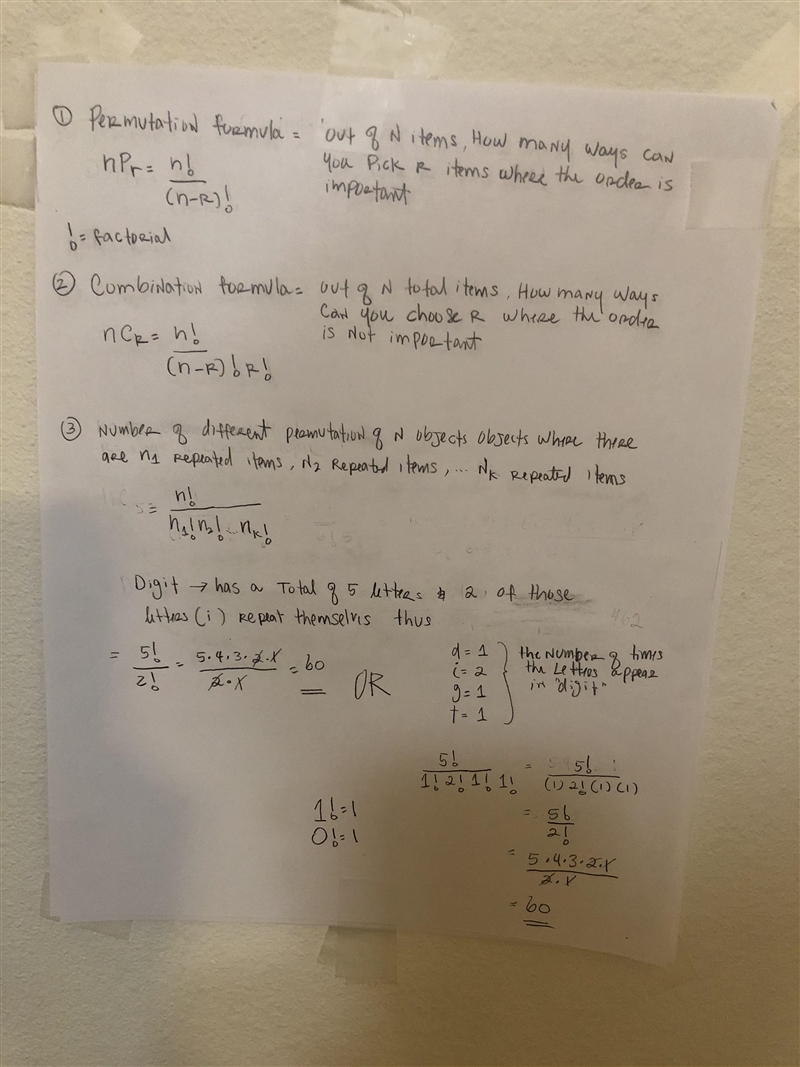 ① Permutation formula = out of N items, How many ways can
nPr = n!
you Pick R items where the order is
(n-R)!
important
! = factorial
② Combination formula = out of N total items, How many ways
can you choose R where the order
nCR = n!
is Not important
(n-R)!R!
③ Number of different permutation of N objects objects where there
are n1 repeated items, N2 Repeated items, ... NK repeated items
= n!
n1!n2!...nK!
Digit → has a Total of 5 letters & 2 of those
letters (i) repeat themselvis thus
= 5!/2! = 5.4.3.2.1/2.1 = 60 OR
d = 1
i = 2
g = 1
t = 1
the Number of times
the Letters appear
in "digit"
5!/1!2!1!1! = 5!/(1)2!(1)(1)
1! = 1
0! = 1
= 5!/2!
= 5.4.3.2.1/2.1
= 60